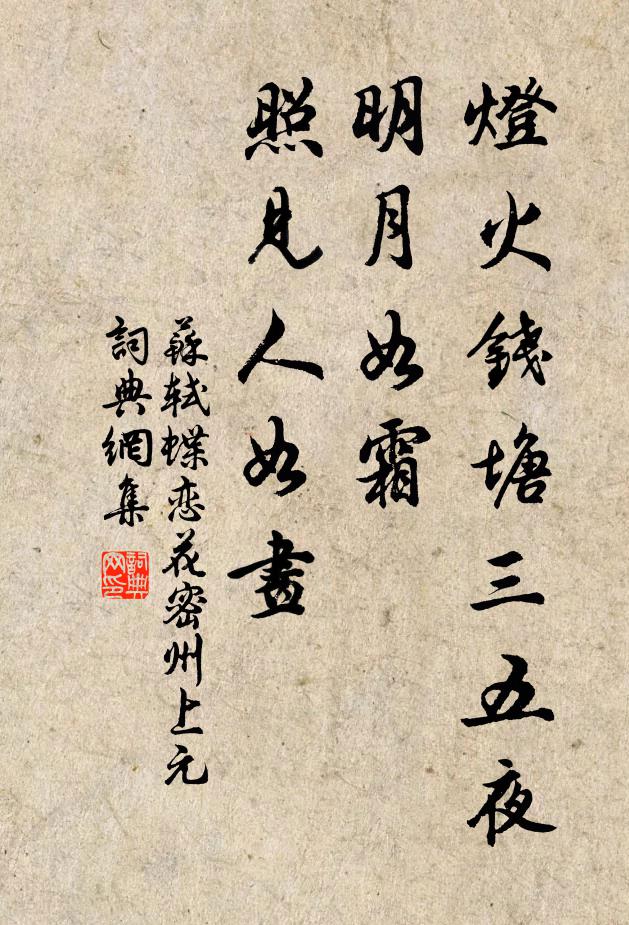 燈火錢塘三五夜
明月如霜
照見人如畫
蘇軾蝶恋花密州上元
詞典網集
詞典
网印